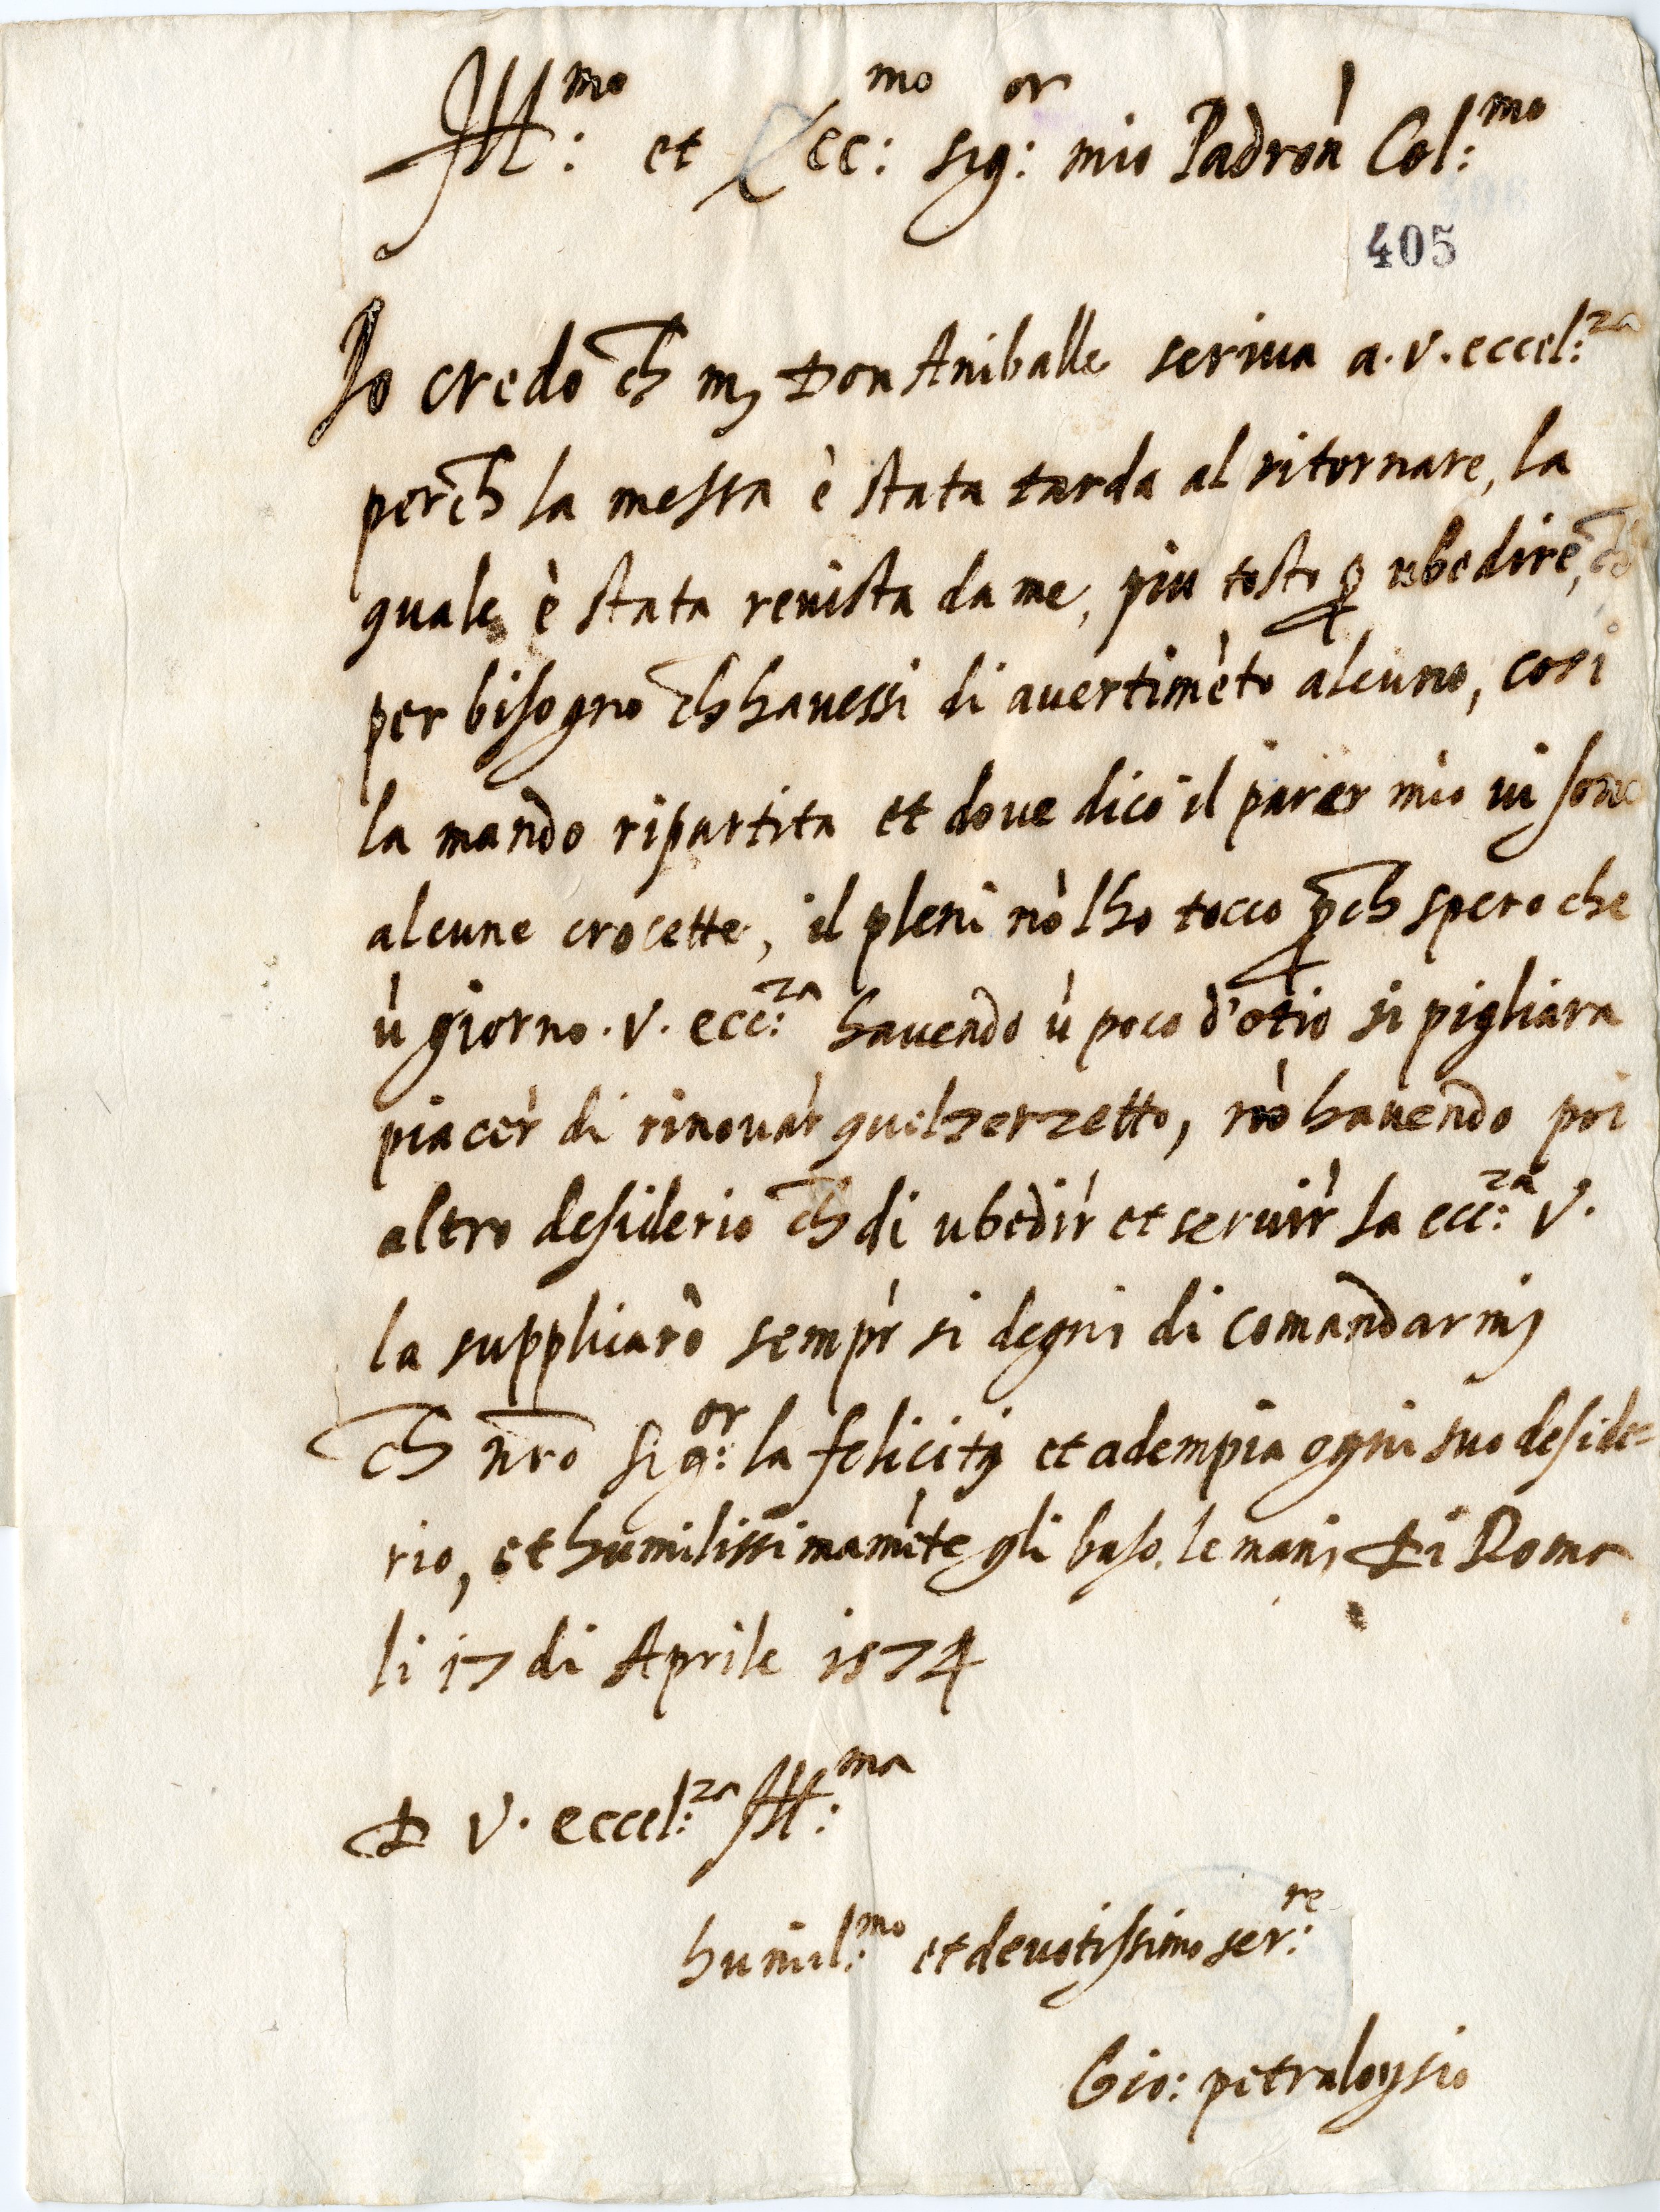 Ill:mo et Ecc:mo sig:or mio Padron Col:mo
405
Io credo ch mr Don Aniballe scriva a. v. eccel:za
perch la messa è stata tarda al ritornare, la
quale è stata revista da me, piu tosto p ubedire, ch
per bisogno ch havessi di avertimēto alcuno, cosi
la mando ripartita et dove dico il parer mio vi sono
alcune crocette, il pleni nō lho tocco pch spero che
ū giorno. v. ecc:za havendo ū poco d'otio si pigliara
piacer di rinovar quel terzetto, nō havendo poi
altro desiderio ch di ubedir et servir la ecc:za V.
la supplicarò sempr si degni di comandarmi
ch nro sig:or la feliciti et adempia ogni suo deside=
rio, et humilissimamēte gli baso le mani Di Roma
li 17 di Aprile 1574
D V. eccel:za Ill:ma
humil:mo et devotissimo ser:re
Gio: petraloysio